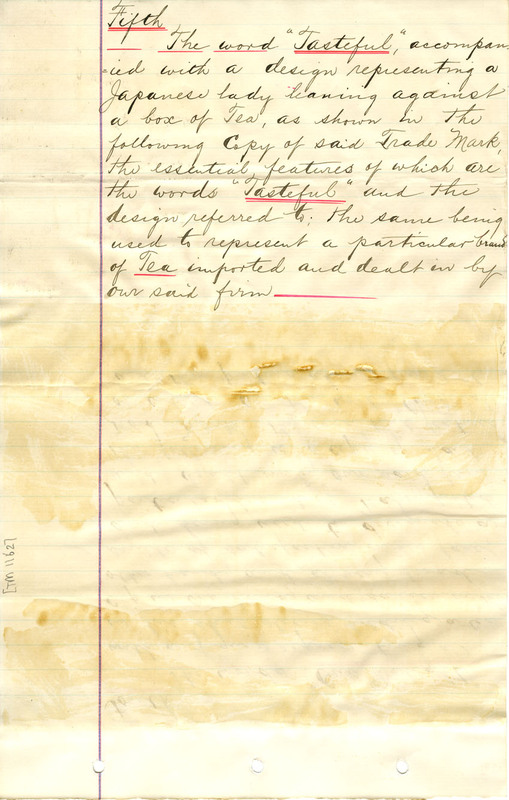 Fifth
The word "Tasteful," accompan-
ied with a design representing a
Japanese lady leaning against
a box of Tea, as shown in the
following Copy of said Trade Mark,
the essential features of which are
the words "Tasteful" and the
design referred to; the same being
used to represent a particular brand
of Tea imported and dealt in by
our said firm
[TM 11627